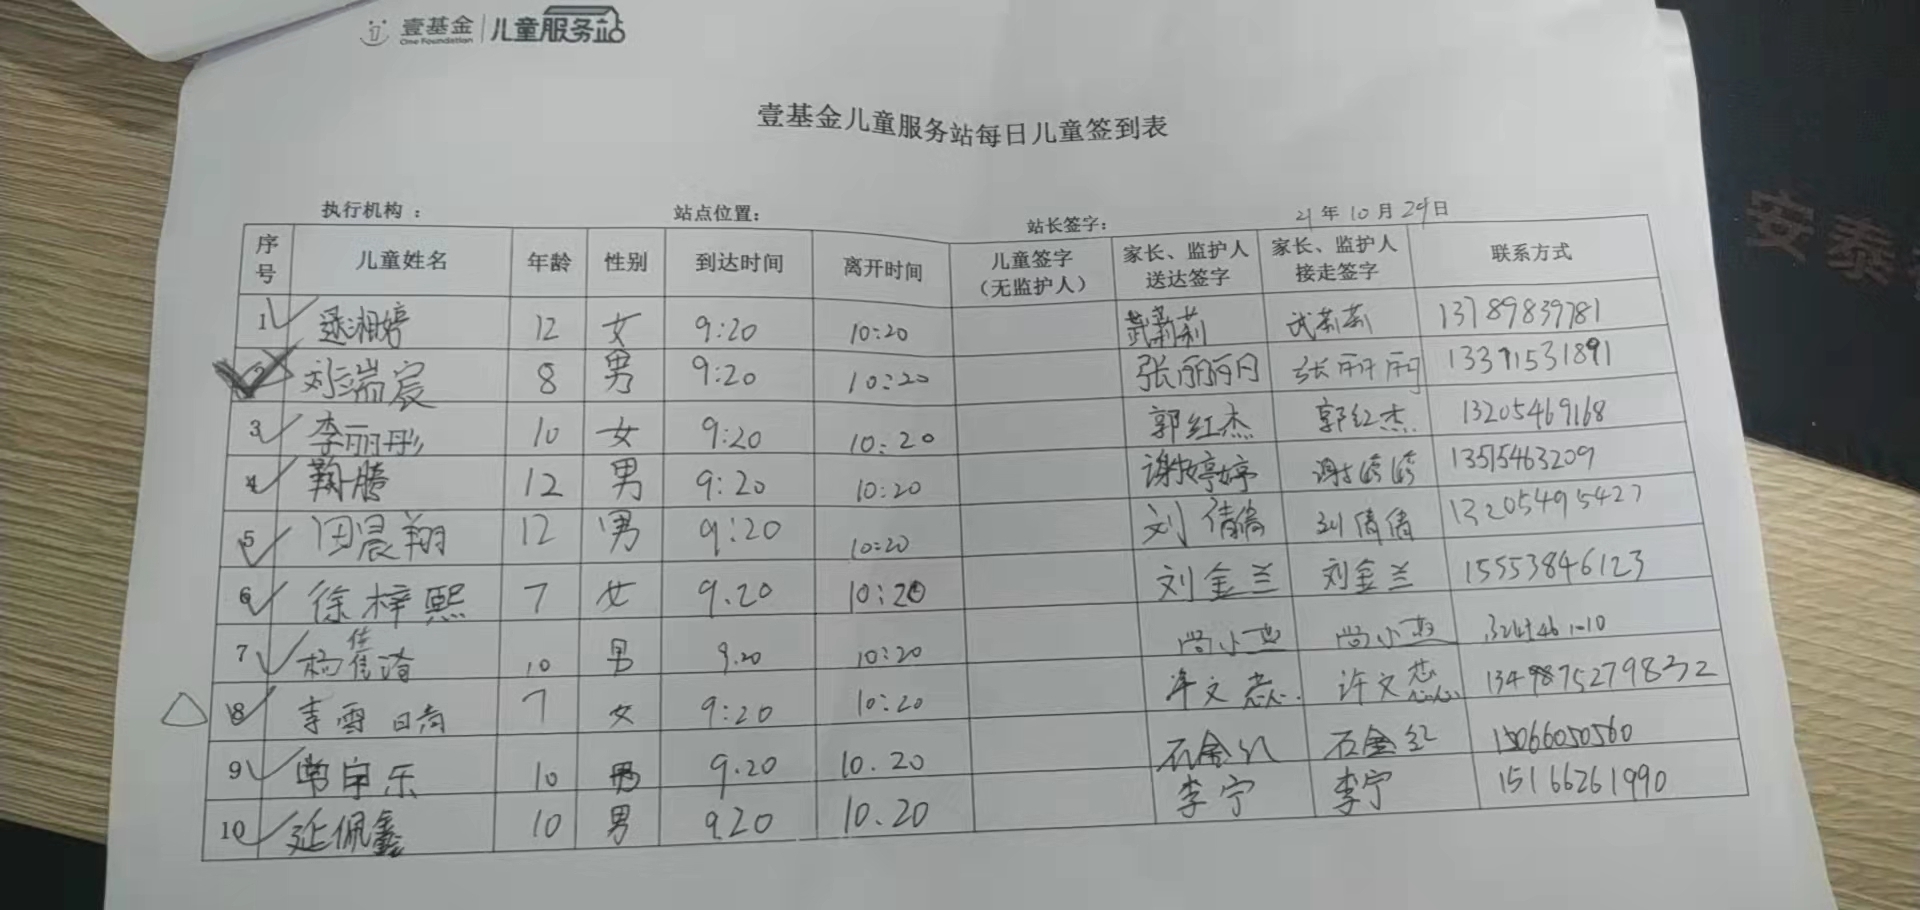 壹基金 儿童服务站
One Foundation
壹基金儿童服务站每日儿童签到表
执行机构： 站点位置： 站长签字： 21年10月29日
序号 儿童姓名 年龄 性别 到达时间 离开时间 儿童签字（无监护人） 家长、监护人送达签字 家长、监护人接走签字 联系方式
1 湘婷 12 女 9:20 10:20 武莉莉 武莉莉 13789839781
2 刘端宸 8 男 9:20 10:20 张丽丽 张丽丽 13391531891
3 李丽彤 10 女 9:20 10:20 郭红杰 郭红杰 13205469168
4 鞠腾 12 男 9:20 10:20 谢婷婷 谢婷婷 13515463209
5 田晨翔 12 男 9:20 10:20 刘倩倩 刘倩倩 13205495427
6 徐梓熙 7 女 9.20 10:20 刘金兰 刘金兰 15553846123
7 杨佳 10 男 9.20 10:20 尚小燕 尚小燕
8 李雪 7 女 9:20 10:20 许文 许文
9 乐 10 男 9.20 10.20 石金红 石金红 15066050560
10 延佩鑫 10 男 9.20 10.20 李宁 李宁 15166261990
安泰